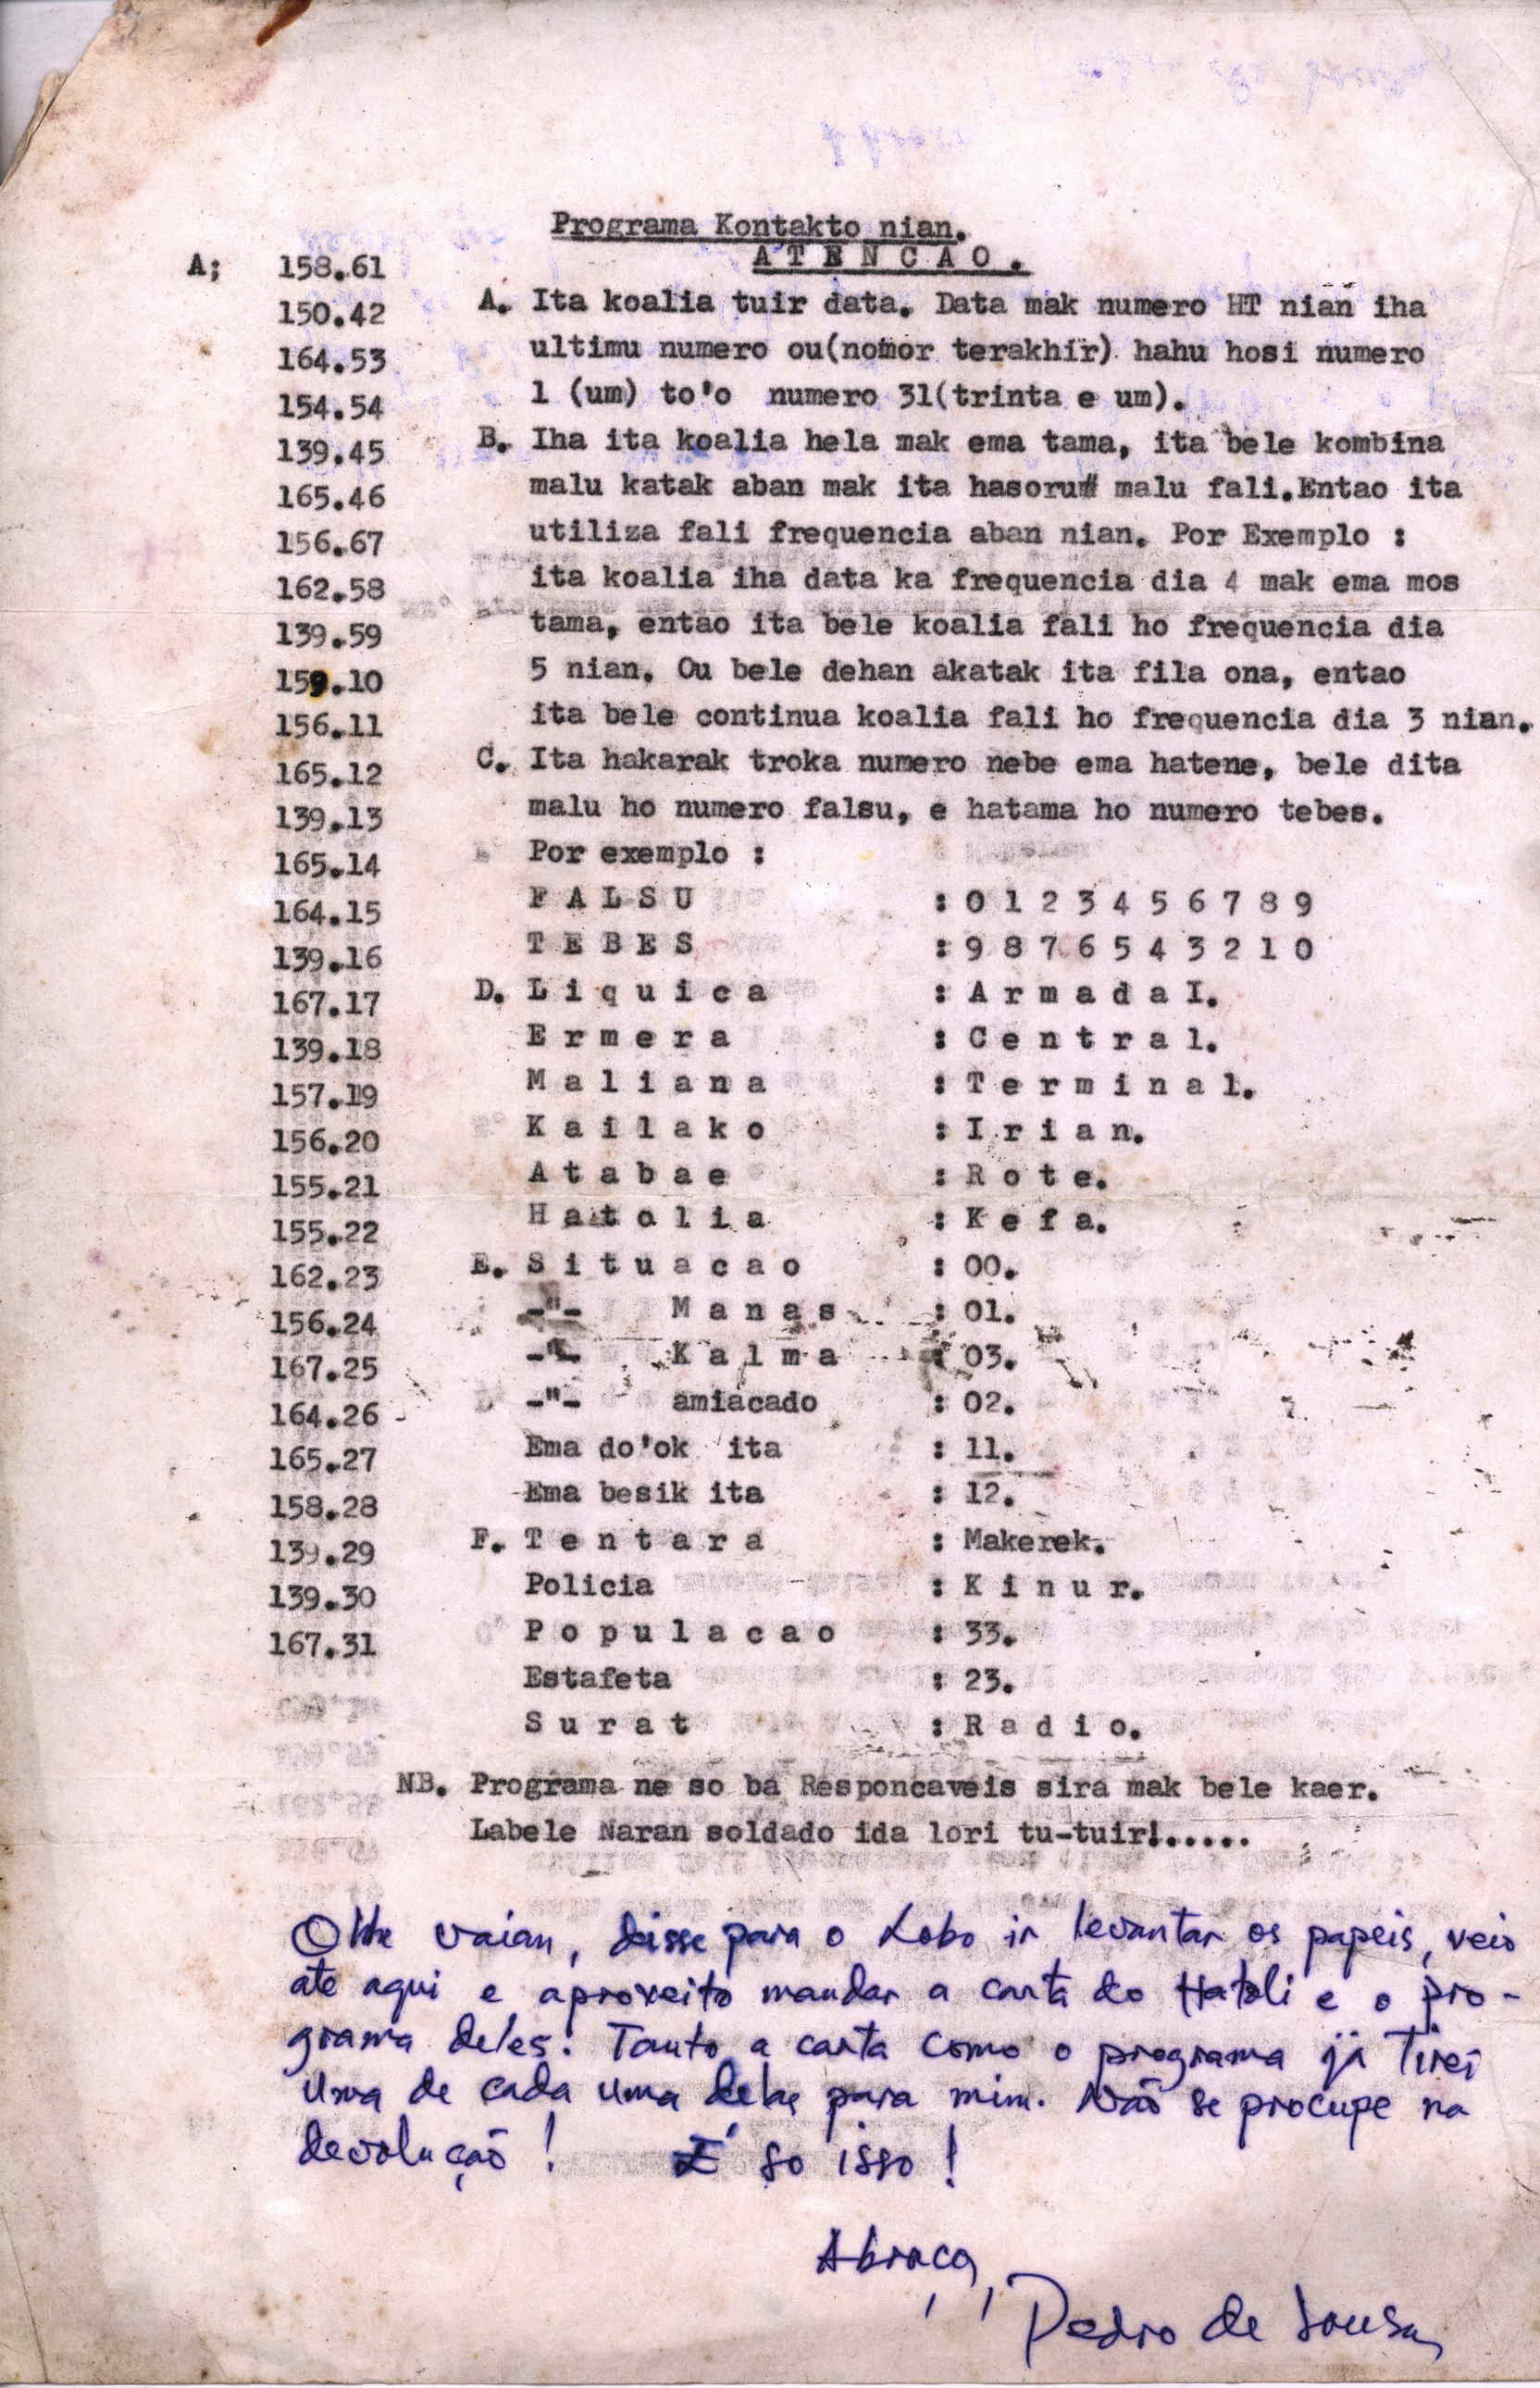 Programa Kontakto nian.
A T E N C A O .
A; 158.61
150.42
164.53
154.54
139.45
165.46
156.67
162.58
139.59
159.10
156.11
165.12
139.13
165.14
164.15
139.16
167.17
139.18
157.19
156.20
155.21
155.22
162.23
156.24
167.25
164.26
165.27
158.28
139.29
139.30
167.31
A. Ita koalia tuir data. Data mak numero HT nian iha
ultimu numero ou(nomor terakhir) hahu hosi numero
1 (um) to'o numero 31(trinta e um).
B. Iha ita koalia hela mak ema tama, ita bele kombina
malu katak aban mak ita hasoru# malu fali.Entao ita
utiliza fali frequencia aban nian. Por Exemplo :
ita koalia iha data ka frequencia dia 4 mak ema mos
tama, entao ita bele koalia fali ho frequencia dia
5 nian. Ou bele dehan akatak ita fila ona, entao
ita bele continua koalia fali ho frequencia dia 3 nian.
C. Ita hakarak troka numero nebe ema hatene, bele dita
malu ho numero falsu, e hatama ho numero tebes.
Por exemplo :
F A L S U : 0 1 2 3 4 5 6 7 8 9
T E B E S : 9 8 7 6 5 4 3 2 1 0
D. L i q u i c a : A r m a d a I.
E r m e r a : C e n t r a l.
M a l i a n a : T e r m i n a l.
K a i l a k o : I r i a n.
A t a b a e : R o t e.
H a t o l i a : K e f a.
E. S i t u a c a o : 00.
-"- M a n a s : 01.
-"- K a l m a : 03.
-"- amiacado : 02.
Ema do'ok ita : 11.
Ema besik ita : 12.
F. T e n t a r a : Makerek.
Policia : K i n u r.
P o p u l a c a o : 33.
Estafeta : 23.
S u r a t : R a d i o.
NB. Programa ne so ba Responcaveis sira mak bele kaer.
Labele Naran soldado ida lori tu-tuir!.....
vaian, disse para o Lobo ir levantar os papeis, veio
ate aqui e aproveito mandar a carta do Hatoli e o pro-
grama deles. Tanto a carta como o programa já tirei
uma de cada uma delas para mim. Não se procupe na
devolução ! É so isso !
Abraço,
Pedro de Sousa